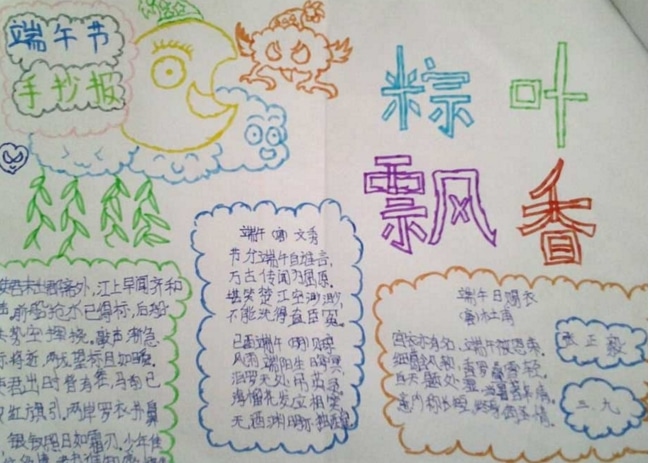 端午节
手抄报
粽叶
飘香
端午(唐)文秀
节分端午自谁言,
万古传闻为屈原。
堪笑楚江空渺渺,
不能洗得直臣冤。
已酉端午(明)贝琼
风雨端阳生晦冥
汨罗无处吊英灵
海榴花发应相笑
无酒渊明亦独醒
端午日赐衣
(唐)杜甫
宫衣亦有名,端午被恩荣。
细葛含风软,香罗叠雪轻。
自天题处湿,当暑著来清。
意内称长短,终身荷圣情。
张正毅
三.九
外,江上早闻齐和
前船抢水已得标,后船
空挥桡。鼓声渐急
标将近,两龙望标目如瞬。
君出时皆有
红旗引,两岸罗衣
银钗照日如霜刃。